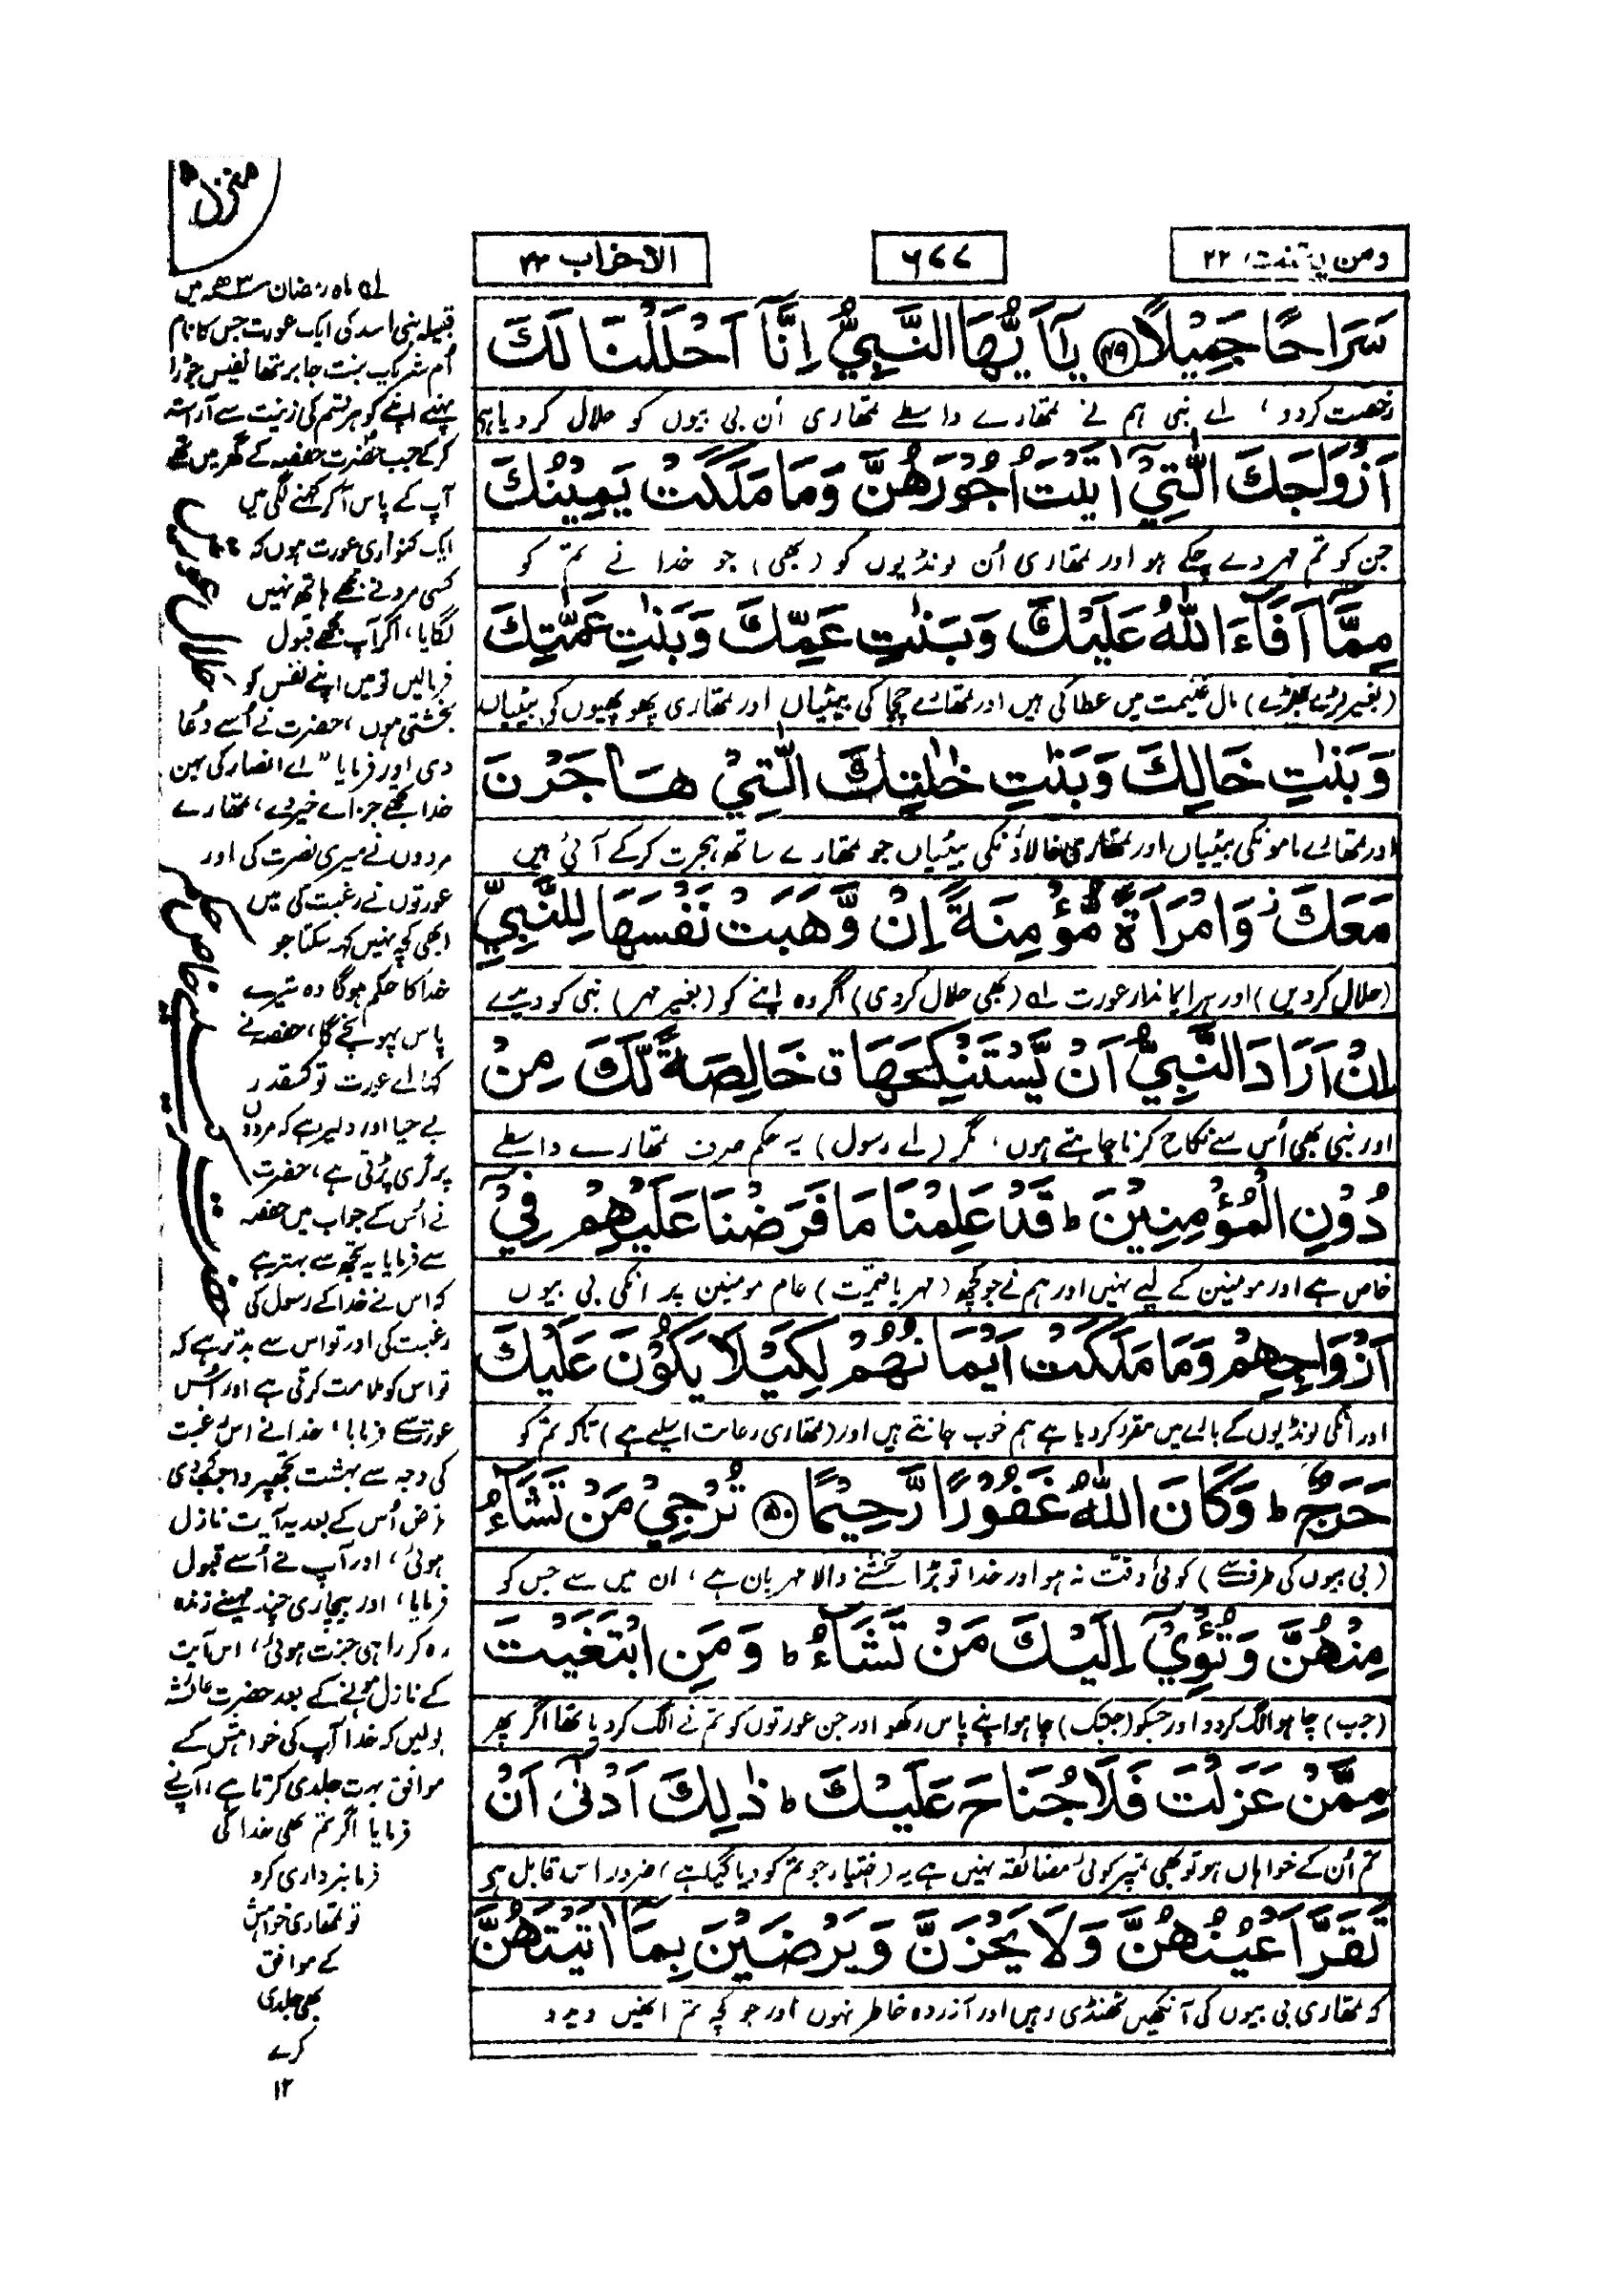 منزل ۵
ومن یقنت ۲۲
۶۷۷
الاحزاب ۳۳
سَرَاحًا جَمِيْلًا ۴۹ يٰٓاَيُّهَا النَّبِيُّ اِنَّآ اَحْلَلْنَا لَكَ
رخصت کردو، اے نبی ہم نے تمھارے واسطے تمھاری اُن بی بیوں کو حلال کر دیا ہے
اَزْوَاجَكَ الّٰتِيْٓ اٰتَيْتَ اُجُوْرَهُنَّ وَمَا مَلَكَتْ يَمِيْنُكَ
جن کو تم مہر دے چکے ہو اور تمھاری اُن لونڈیوں کو (بھی) جو خدا نے تم کو
مِمَّآ اَفَآءَ اللّٰهُ عَلَيْكَ وَبَنٰتِ عَمِّكَ وَبَنٰتِ عَمّٰتِكَ
(بغیر لڑے بھڑے) مال غنیمت میں عطا کی ہیں اور تمھارے چچا کی بیٹیاں اور تمھاری پھوپھیوں کی بیٹیاں
وَبَنٰتِ خَالِكَ وَبَنٰتِ خٰلٰتِكَ الّٰتِيْ هَاجَرْنَ
اور تمھارے ماموں کی بیٹیاں اور تمھاری خالاؤں کی بیٹیاں جو تمھارے ساتھ ہجرت کرکے آئی ہیں
مَعَكَ ز وَامْرَاَةً مُّؤْمِنَةً اِنْ وَّهَبَتْ نَفْسَهَا لِلنَّبِيِّ
(حلال کردیں) اور ہر ایماندار عورت لہ (بھی حلال کردی) اگر وہ اپنے کو (بغیر مہر) نبی کو دیدے
اِنْ اَرَادَ النَّبِيُّ اَنْ يَّسْتَنْكِحَهَا ق خَالِصَةً لَّكَ مِنْ
اور نبی بھی اُس سے نکاح کرنا چاہتے ہوں، مگر (اے رسول) یہ حکم صرف تمھارے واسطے
دُوْنِ الْمُؤْمِنِيْنَ ط قَدْ عَلِمْنَا مَا فَرَضْنَا عَلَيْهِمْ فِيْٓ
خاص ہے اور مومنین کے لیے نہیں اور ہم نے جو کچھ (مہر یا قیمت) عام مومنین پر انکی بی بیوں
اَزْوَاجِهِمْ وَمَا مَلَكَتْ اَيْمَانُهُمْ لِكَيْلَا يَكُوْنَ عَلَيْكَ
اور انکی لونڈیوں کے بارے میں مقرر کر دیا ہے ہم خوب جانتے ہیں اور (تمھاری رعایت اسلیے ہے) تاکہ تم کو
حَرَجٌ ط وَكَانَ اللّٰهُ غَفُوْرًا رَّحِيْمًا ۵۰ تُرْجِيْ مَنْ تَشَآءُ
(بی بیوں کی طرف سے) کوئی دقت نہ ہو اور خدا تو بڑا بخشنے والا مہربان ہے، ان میں سے جس کو
مِنْهُنَّ وَتُؤْوِيْٓ اِلَيْكَ مَنْ تَشَآءُ ط وَمَنِ ابْتَغَيْتَ
(جب) چاہو الگ کردو اور جسکو (جبتک) چاہو اپنے پاس رکھو اور جن عورتوں کو تم نے الگ کردیا تھا اگر پھر
مِمَّنْ عَزَلْتَ فَلَا جُنَاحَ عَلَيْكَ ط ذٰلِكَ اَدْنٰٓى اَنْ
تم اُن کے خواہاں ہو تو بھی تمپر کوئی مضائقہ نہیں ہے یہ (اختیار جو تم کو دیا گیا ہے) ضرور اس قابل ہے
تَقَرَّ اَعْيُنُهُنَّ وَلَا يَحْزَنَّ وَيَرْضَيْنَ بِمَآ اٰتَيْتَهُنَّ
کہ تمھاری بی بیوں کی آنکھیں ٹھنڈی رہیں اور آزردہ خاطر نہوں اور جو کچھ تم انھیں دیدو
لہ ماہ رمضان سنہ ۳ھ میں
قبیلہ بنی اسد کی ایک عورت جس کا نام
اُم شریک بنت جابر تھا نفیس جوڑا
پہنے اپنے کو ہر قسم کی زینت سے آراستہ
کرکے جب حضرت حفصہ کے گھر میں تھے
آپ کے پاس آکر کہنے لگی میں
ایک کنواری عورت ہوں کہ
کسی مرد نے مجھے ہاتھ نہیں
لگایا، اگر آپ مجھے قبول
فرمالیں تو میں اپنے نفس کو
بخشتی ہوں، حضرت نے اُسے دُعا
دی اور فرمایا "اے انصار کی بہن
خدا تجھے جزاے خیر دے، تمھارے
مردوں نے میری نصرت کی اور
عورتوں نے رغبت کی میں
ابھی کچھ نہیں کہہ سکتا جو
خدا کا حکم ہوگا وہ تیرے
پاس پہونچے گا، حفصہ نے
کہا اے عورت تو کسقدر
بے حیا اور دلیر ہے کہ مردوں
پر گری پڑتی ہے، حضرت
نے اُس کے جواب میں حفصہ
سے فرمایا یہ تجھ سے بہتر ہے
کہ اس نے خدا کے رسول کی
رغبت کی اور تو اس سے بدتر ہے کہ
تو اس کو ملامت کرتی ہے اور اُس
عورت سے فرمایا، خدا نے اس رغبت
کی وجہ سے بہشت تجھپر واجب کردی
غرض اُس کے بعد یہ آیت نازل
ہوئی، اور آپ نے اُسے قبول
فرمایا، اور بیچاری چند مہینے زندہ
رہ کر راہی جنت ہوئی، اس آیت
کے نازل ہونے کے بعد حضرت عائشہ
بولیں کہ خدا آپ کی خواہش کے
موافق بہت جلدی کرتا ہے، آپنے
فرمایا اگر تم بھی خدا کی
فرمانبرداری کرو
تو تمھاری خواہش
کے موافق
بھی جلدی
کرے
۱۲
حلال عورتیں
حضرت کے لیے خاص حکم